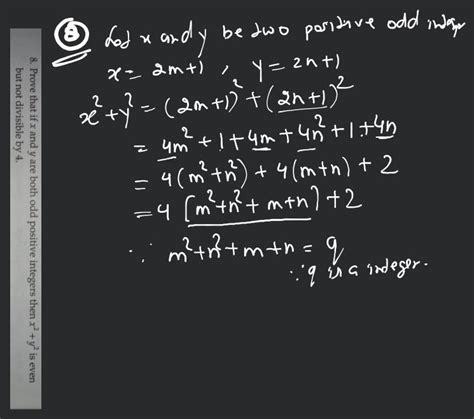 8. Prove that if x and y are both odd positive integers then x² + y² is even
but not divisible by 4.
⑧ Let x and y be two positive odd integer
x = 2m+1 , y = 2n+1
x²+y² = (2m+1)² + (2n+1)²
= 4m² + 1 + 4m + 4n² + 1 + 4n
= 4(m²+n²) + 4(m+n) + 2
= 4 [m²+n² + m+n] + 2
∵ m²+n²+m+n = q
∵ q is a integer.